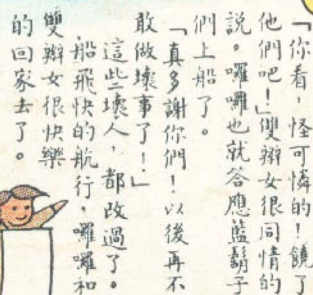 「你看，怪可憐的！饒了
他們吧！」雙辮女很同情的
說。囉囉也就答應藍鬍子
們上船了。
「真多謝你們！以後再不
敢做壞事了！」
這些壞人，都改過了。
船飛快的航行，囉囉和
雙辮女很快樂
的回家去了。